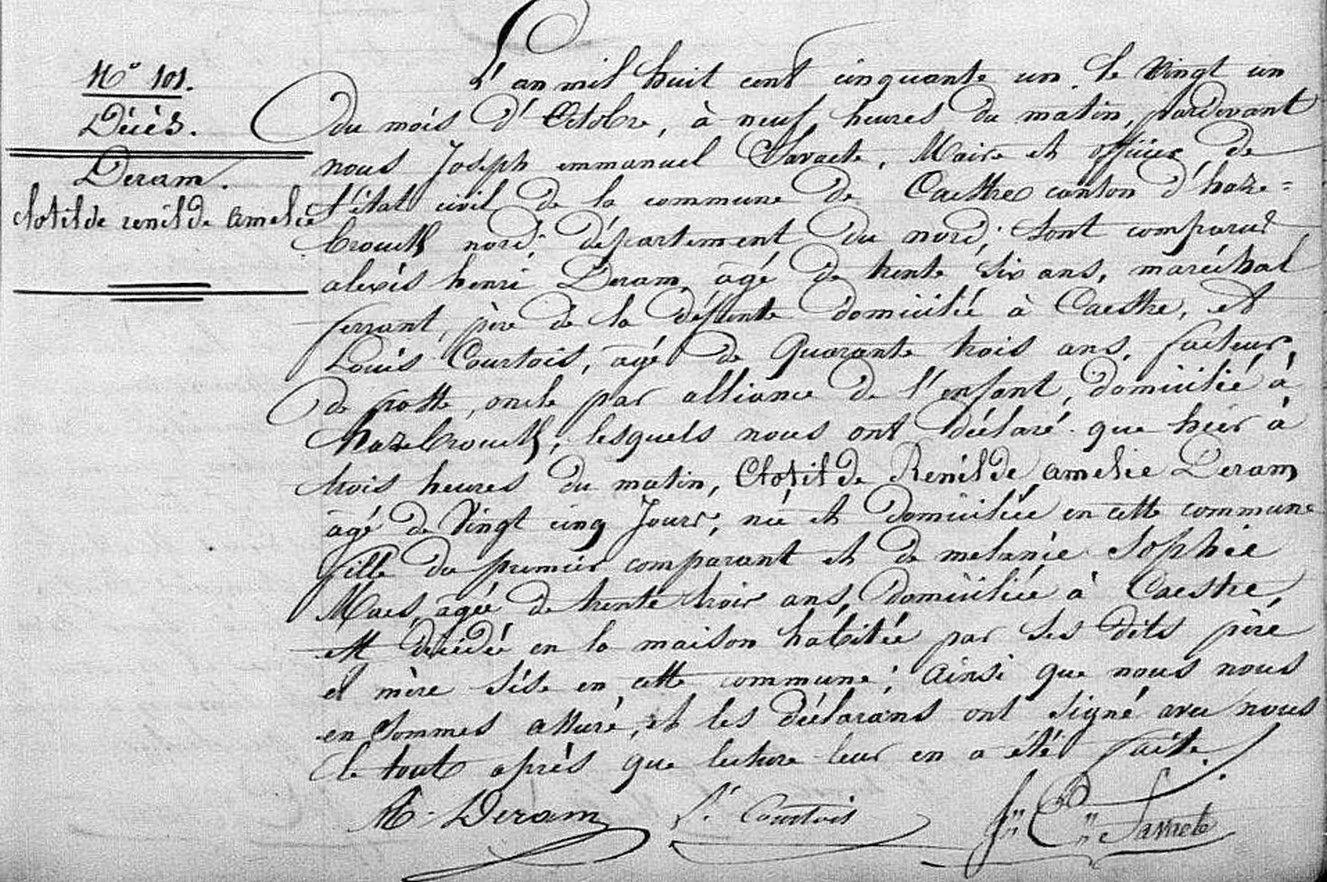 N° 101.
Décès.
Deram.
Clotilde renilde amelie
L'an mil huit cent cinquante un, le Vingt un
du mois d'Octobre, à neuf heures du matin, pardevant
nous Joseph emmanuel Maire et officier de
l'état civil de la commune de Caestre canton d'haze=
brouck nord, département du nord, sont comparus
alexis henri Deram, âgé de trente six ans, maréchal
ferrant, père de la défunte domicilié à Caestre, et
Louis Courtois, âgé de Quarante trois ans, facteur
de poste, oncle par alliance de l'enfant, domicilié à
hazebrouck, lesquels nous ont déclaré que hier à
trois heures du matin, Clotilde Renilde amelie Deram
âgé de Vingt cinq Jours, née et domiciliée en cette commune
fille du premier comparant et de melanie Sophie
Maes, âgée de trente trois ans, domiciliée à Caestre,
est décédée en la maison habitée par ses dits père
et mère sise en cette commune; Ainsi que nous nous
en sommes assuré, et les déclarans ont signé avec nous
le tout après que lecture leur en a été faite.
Deram L. Courtois